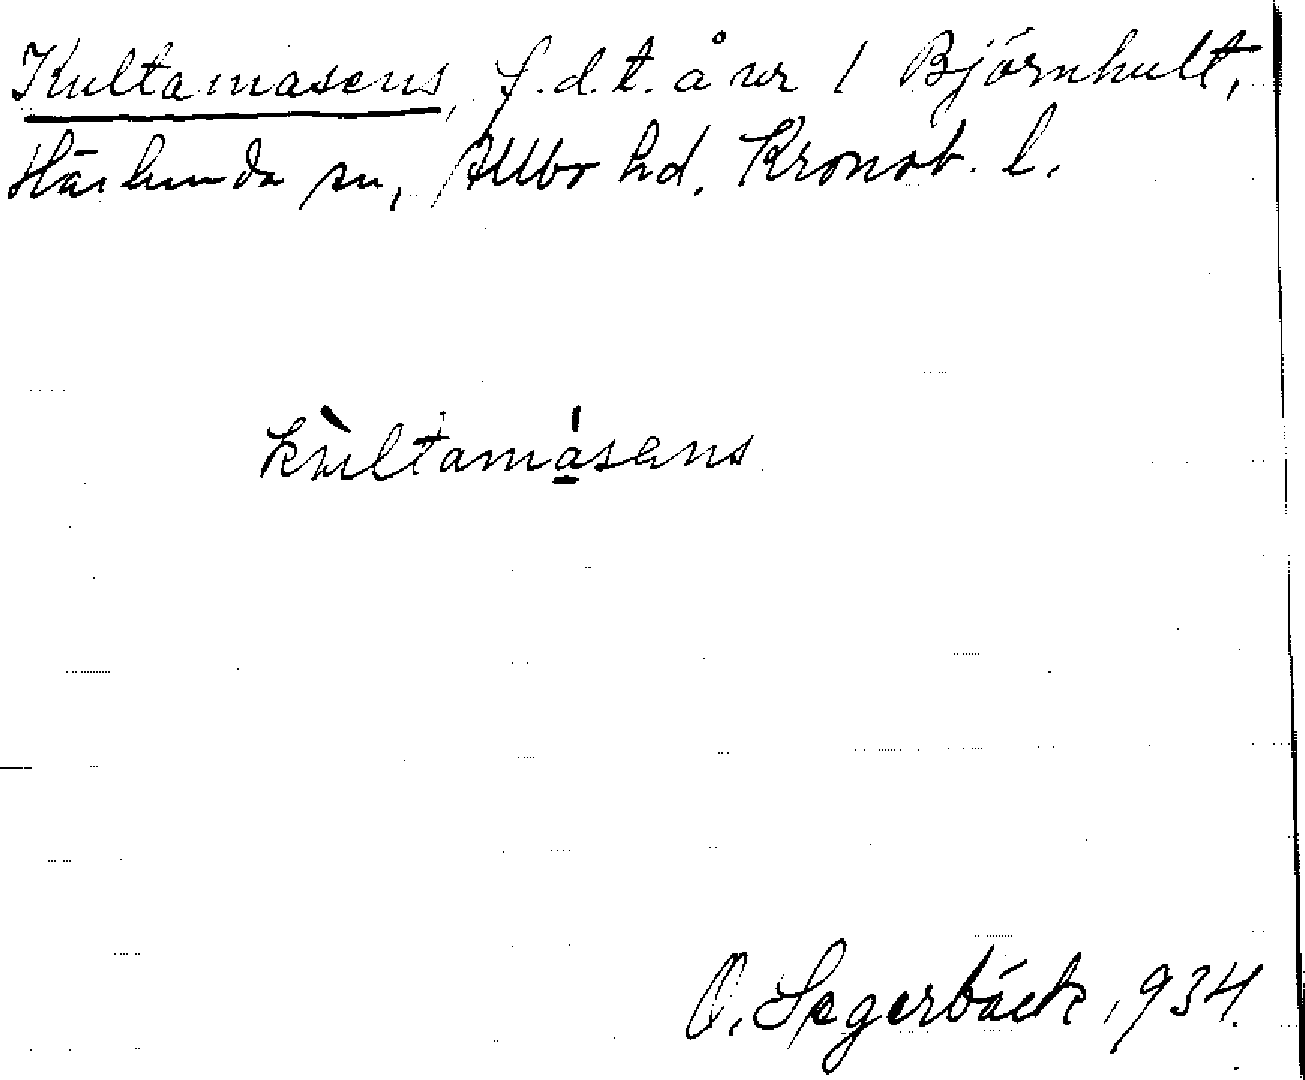 Kultamasens, f.d.t. å ur / Björnhult,
Härlunda sn, Allbo hd. Kronob. l.
kùltamásens
O. Sagerbäck, 934.